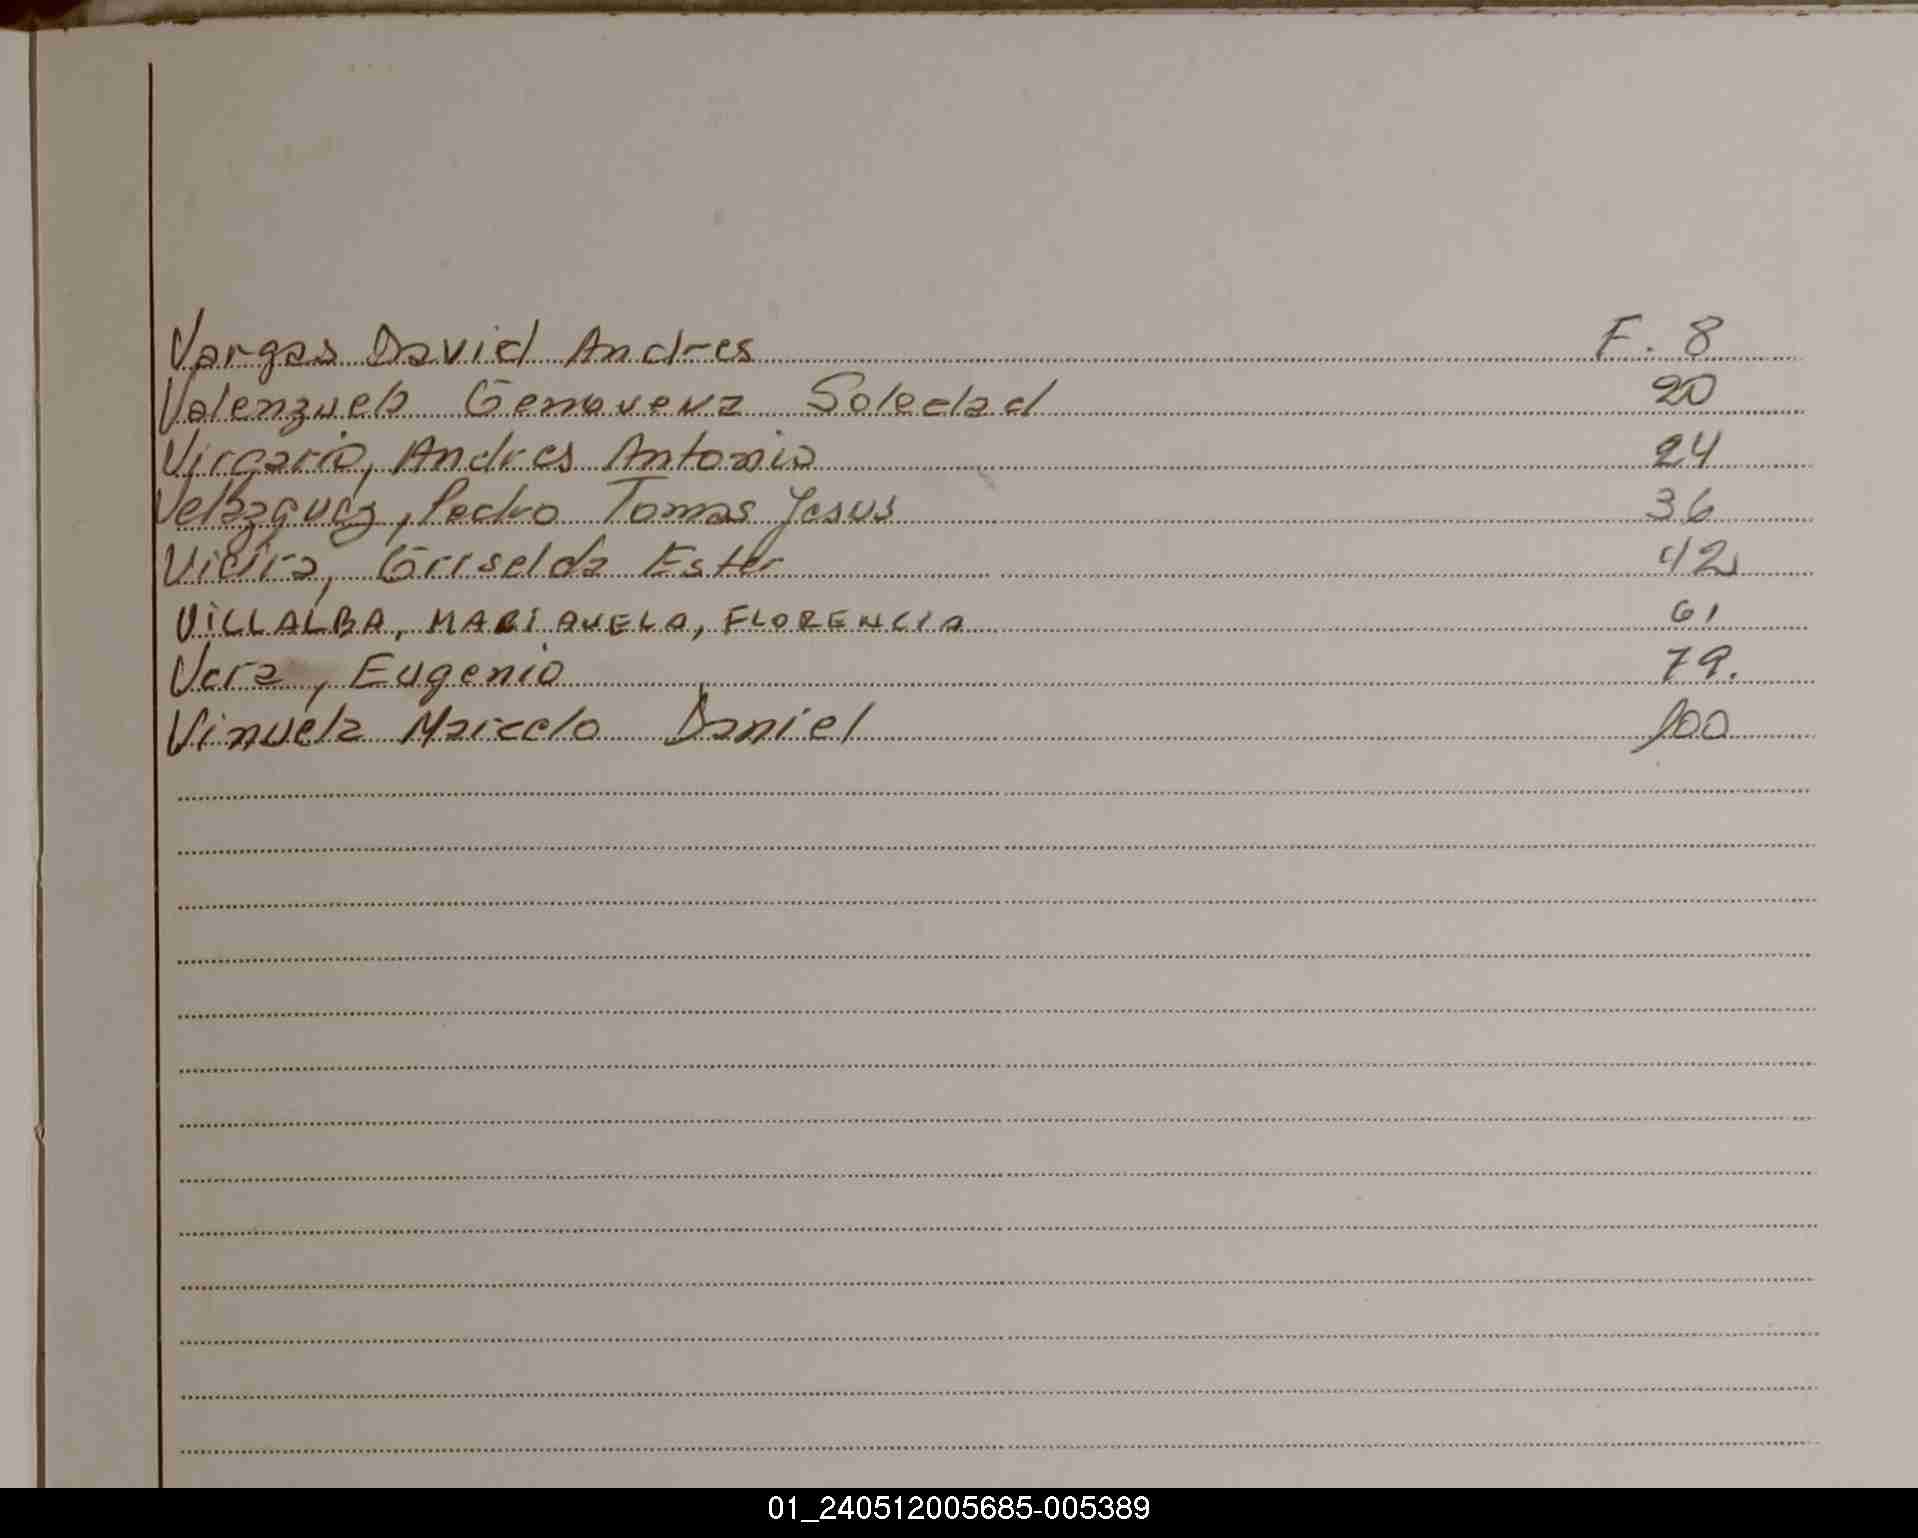 Vargas David Andres F. 8
Valenzuela Genoveva Soledad 20
Virgario, Andres Antonio 24
Velazquez, Pedro Tomas Jesus 36
Vieira, Griselda Ester 42
VILLALBA, MARIANELA, FLORENCIA 61
Vera, Eugenio 79.
Vinuela Marcelo Daniel 100
01_240512005685-005389